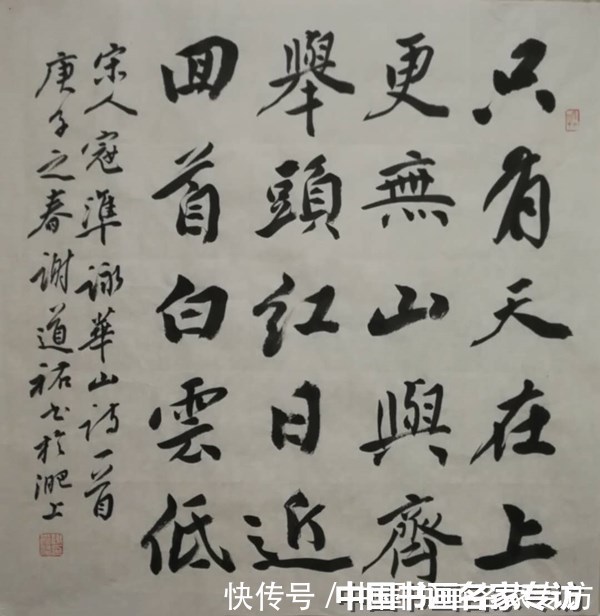 只有天在上
更無山與齊
舉頭紅日近
回首白雲低
宋人寇準詠華山詩一首
庚子之春謝道祐书於淝上
快传号 / 中国书画名家专访